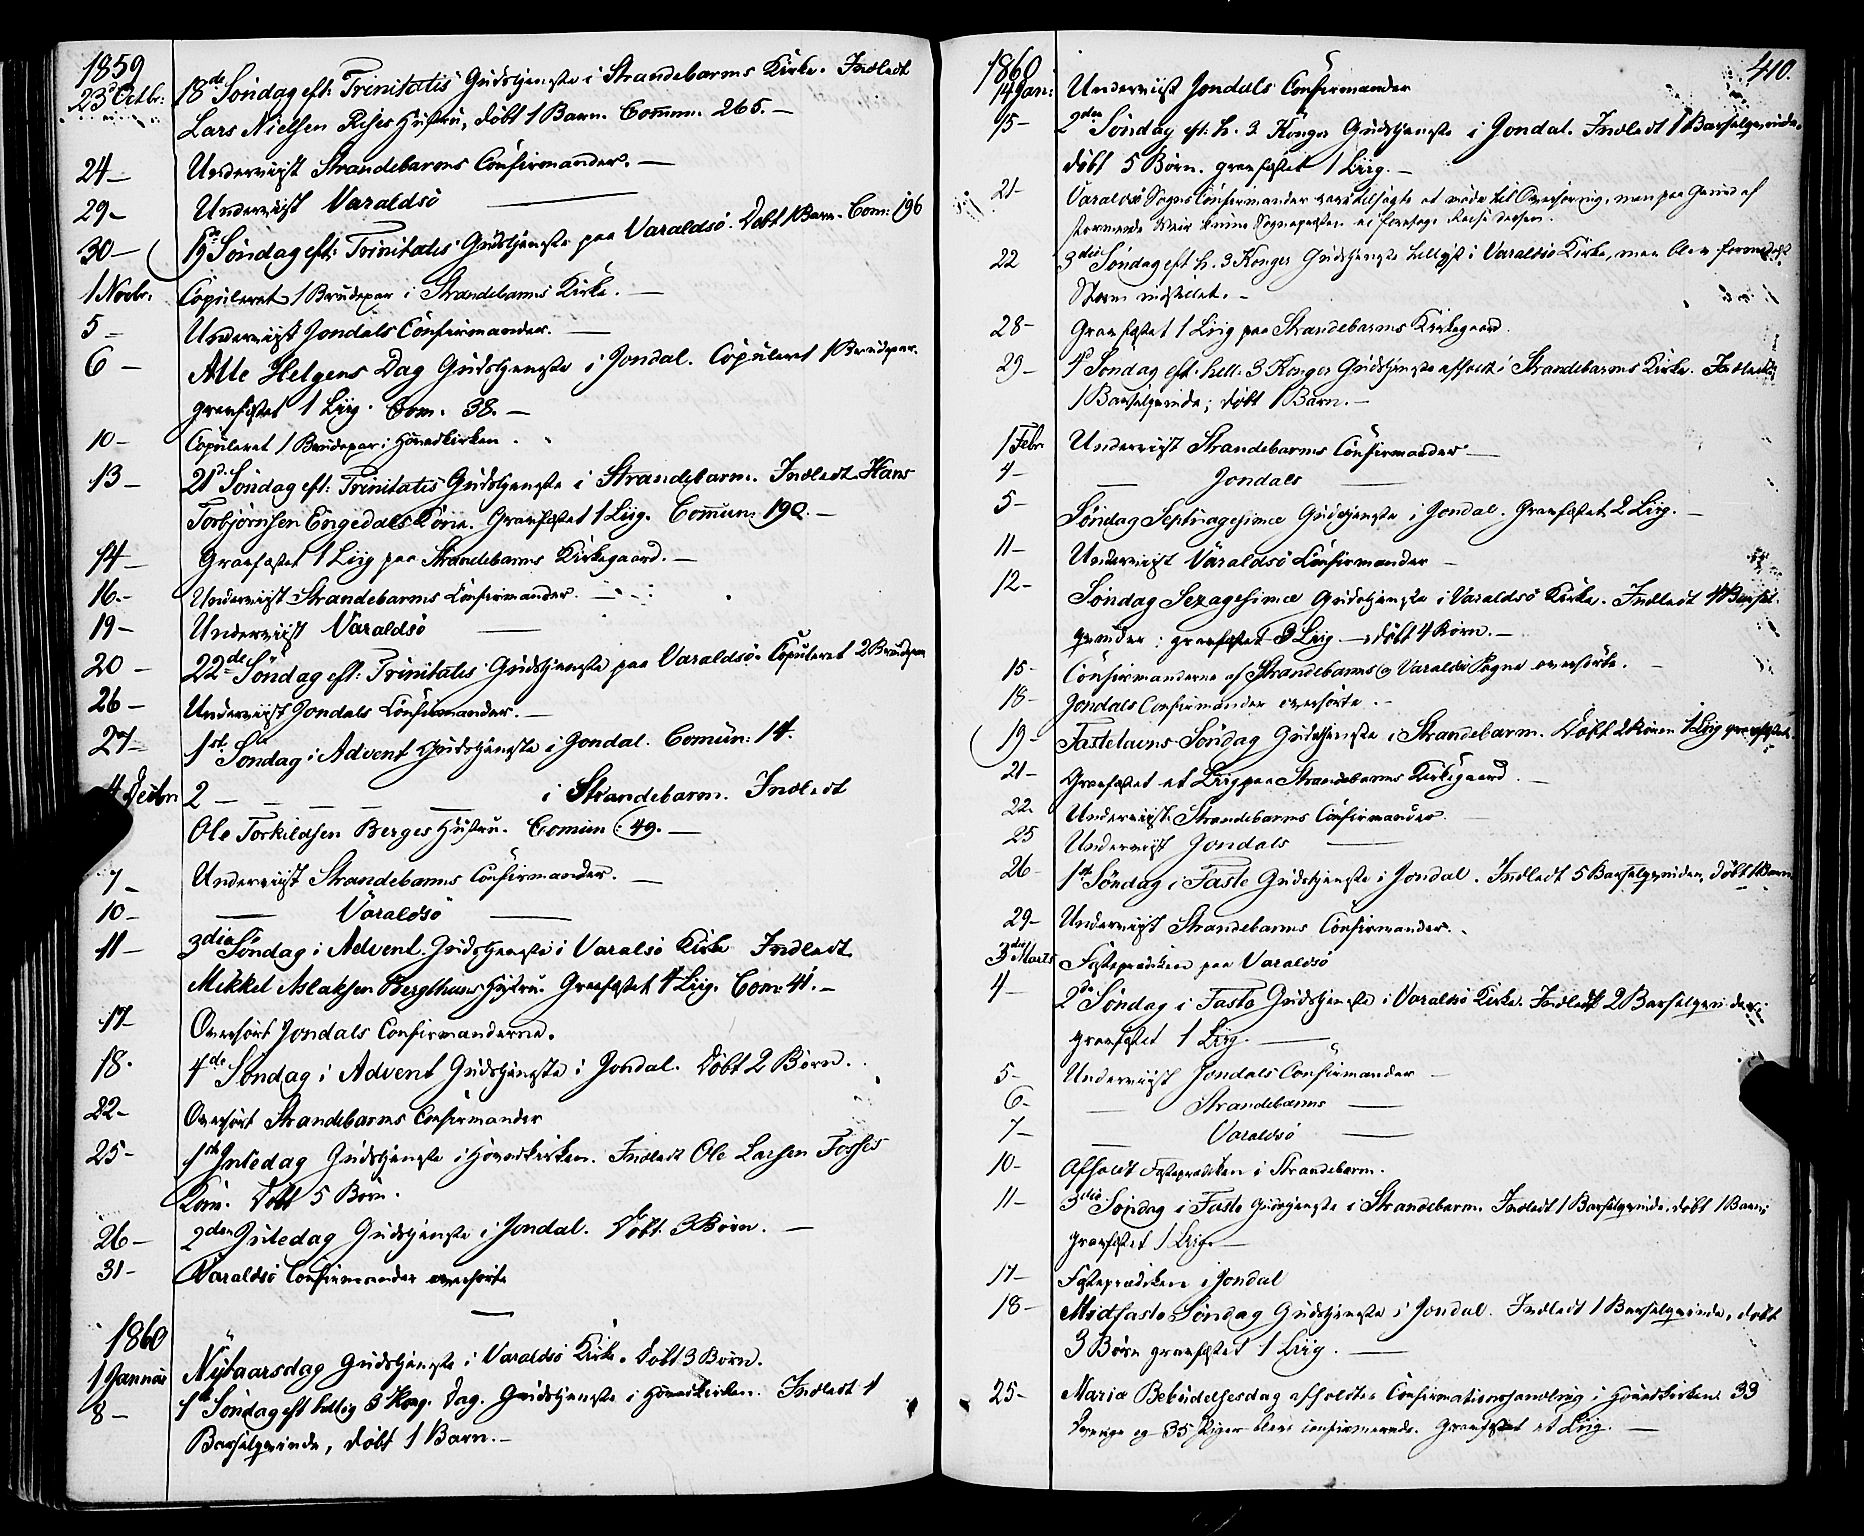 1859
23de Octbr: 18de Søndag eft: Trinitatis Gudstjeneste i Strandebarms Kirke. Indledt
Lars Nielsen Rises Hustru, døbt 1 Barn. Commn. 265. —
24 — Underviist Strandebarms Confirmander. —
29 — Underviist Varaldsö —
30 — 19de Søndag eft: Trinitatis Gudstjeneste paa Varaldsö. Døbt 1 Barn. Com: 196
1 Novbr: Copuleret 1 Brudepar i Strandebarms Kirke. —
5 — Underviist Jondals Confirmander. —
6 — Alle Helgens Dag Gudstjeneste i Jondal. Copuleret 1 Brudepar.
Græsfæstet 1 Liig. Com. 38. —
10 — Copuleret 1 Brudepar i Hovedkirken.
13 — 21de Søndag eft: Trinitatis Gudstjeneste i Strandebarm. Indledt Hans
Torbjørnsen Engedals Kone. Græsfæstet 1 Liig. Commun: 192. —
14 — Græsfæstet 1 Liig paa Strandebarms Kirkegaard. —
16. — Underviist Strandebarms Confirmander. —
19 — Underviist Varaldsö —
20 — 22de Søndag eft: Trinitatis Gudstjeneste paa Varaldsö. Copuleret 2 Brudepar
26 — Underviist Jondals Confirmander. —
27 — 1ste Søndag i Advent Gudstjeneste i Jondal. Comun: 14.
4 Decbr 2 — — — — — i Strandebarm. Indledt
Ole Torkildsen Berges Hustru. Comun: 49. —
7 — Underviist Strandebarms Confirmander. —
10 — — Varaldsö —
11 — 3die Søndag i Advent Gudstjeneste i Varalsö Kirke Indledt
Mikkel Aslaksen Hustru Græsfæstet 4 Liig. Com: 41. —
17 — Overhört Jondals Confirmanderne.
18. 4de Søndag i Advent Gudstjeneste i Jondal. Døbt 2 Børn.
22 — Overhört Strandebarms Confirmander
25 — 1ste Juledag Gudstjeneste i Hovedkirken. Indledt Ole Larsen Fosses
Kone. Døbt 5 Børn.
26 — 2den Juledag Gudstjeneste i Jondal. Døbt 3 Børn. —
31 — Varaldsö Confirmander overhörte
—
1860
1 Januar Nytaarsdag Gudstjeneste i Varaldsö Kirke. Døbt 3 Børn.
8 — 1ste Søndag eft hellig 3 Kong. Dag. Gudstjeneste i Hovedkirken. Indledt 1
Barselqvinde, døbt 1 Barn. —
410.
1860
14 Jan: Underviist Jondals Confirmander
15 — 2den Søndag eft. h. 3 Konger Gudstjeneste i Jondal. Indledt 1 Barselqvinde.
døbt 5 Børn. græsfæstet 1 Liig. —
21 — Varaldsö Sogns Confirmander vare tilsagte at møde til Overhøring, men paa Grund af
stormende Veir kunne Sognepræsten ei foretage Reise dersen.
22 3die Søndag eft h. 3 Konger Gudstjeneste bellyst i Varaldsö Kirke, men blev formedelst
Storm indstillet. —
28 — Græsfæstet 1 Liig paa Strandebarms Kirkegaard.
29 — 4de Søndag eft. hell. 3 Konger Gudstjeneste afholdt i Strandebarms Kirke. Indledt
1 Barselqvinde; døbt 1 Barn. —
1 Febr Underviist Strandebarms Confirmander —
4 — — Jondals —
5 — Søndag Septuagesimæ Gudstjeneste i Jondal. Græsfæstet 2 Liig. —
11 — Underviist Varaldsö Confirmander —
12 — Søndag Sexagesimæ Gudstjeneste i Varaldsö Kirke. Indledt 4 Barsel-
qvinder: græsfæstet 3 Liig. — døbt 4 Børn. —
15 — Confirmanderne af Strandebarms og Varaldsö Sogne overhörte. —
18 — Jondals Confirmander overhörte. —
19 — Fastelavns Søndag Gudstjeneste i Strandebarm. Døbt 2 Børn 1 Liig græsfæstet.
21 — Græsfæstet et Liig paa Strandebarms Kirkegaard. —
22. Underviist Strandebarms Confirmander. —
25 Underviist Jondals —
26 — 1ste Søndag i Faste Gudstjeneste i Jondal. Indledt 5 Barselqvinder, døbt 1 Barn
29 — Underviist Strandebarms Confirmander.
3die Marts Fasteprædiken paa Varaldsö
4 — 2den Søndag i Faste Gudstjeneste i Varaldsö Kirke. Indledt 2 Barselqvinder;
græsfæstet 1 Liig. —
5 — Underviist Jondals Confirmander —
6 — — Strandebarms —
7 — — Varaldsö —
10 — Afholdt Fasteprædiken i Strandebarm.
11 — 3die Søndag i Faste Gudstjeneste i Strandebarm. Indledt 1 Barselqvinde, døbt 1 Barn;
græsfæstet 1 Liig. —
17 — Fasteprædiken i Jondal
18 — Midfaste Søndag Gudstjeneste i Jondal. Indledt 1 Barselqvinde, døbt
3 Børn græsfæstet 1 Liig. —
25 — Mariæ Bebudelsesdag afholdtes Confirmationshandling i Hovedkirken 33
Drenge og 35 Piger bleve confirmerede. Græsfæstet et Liig. —